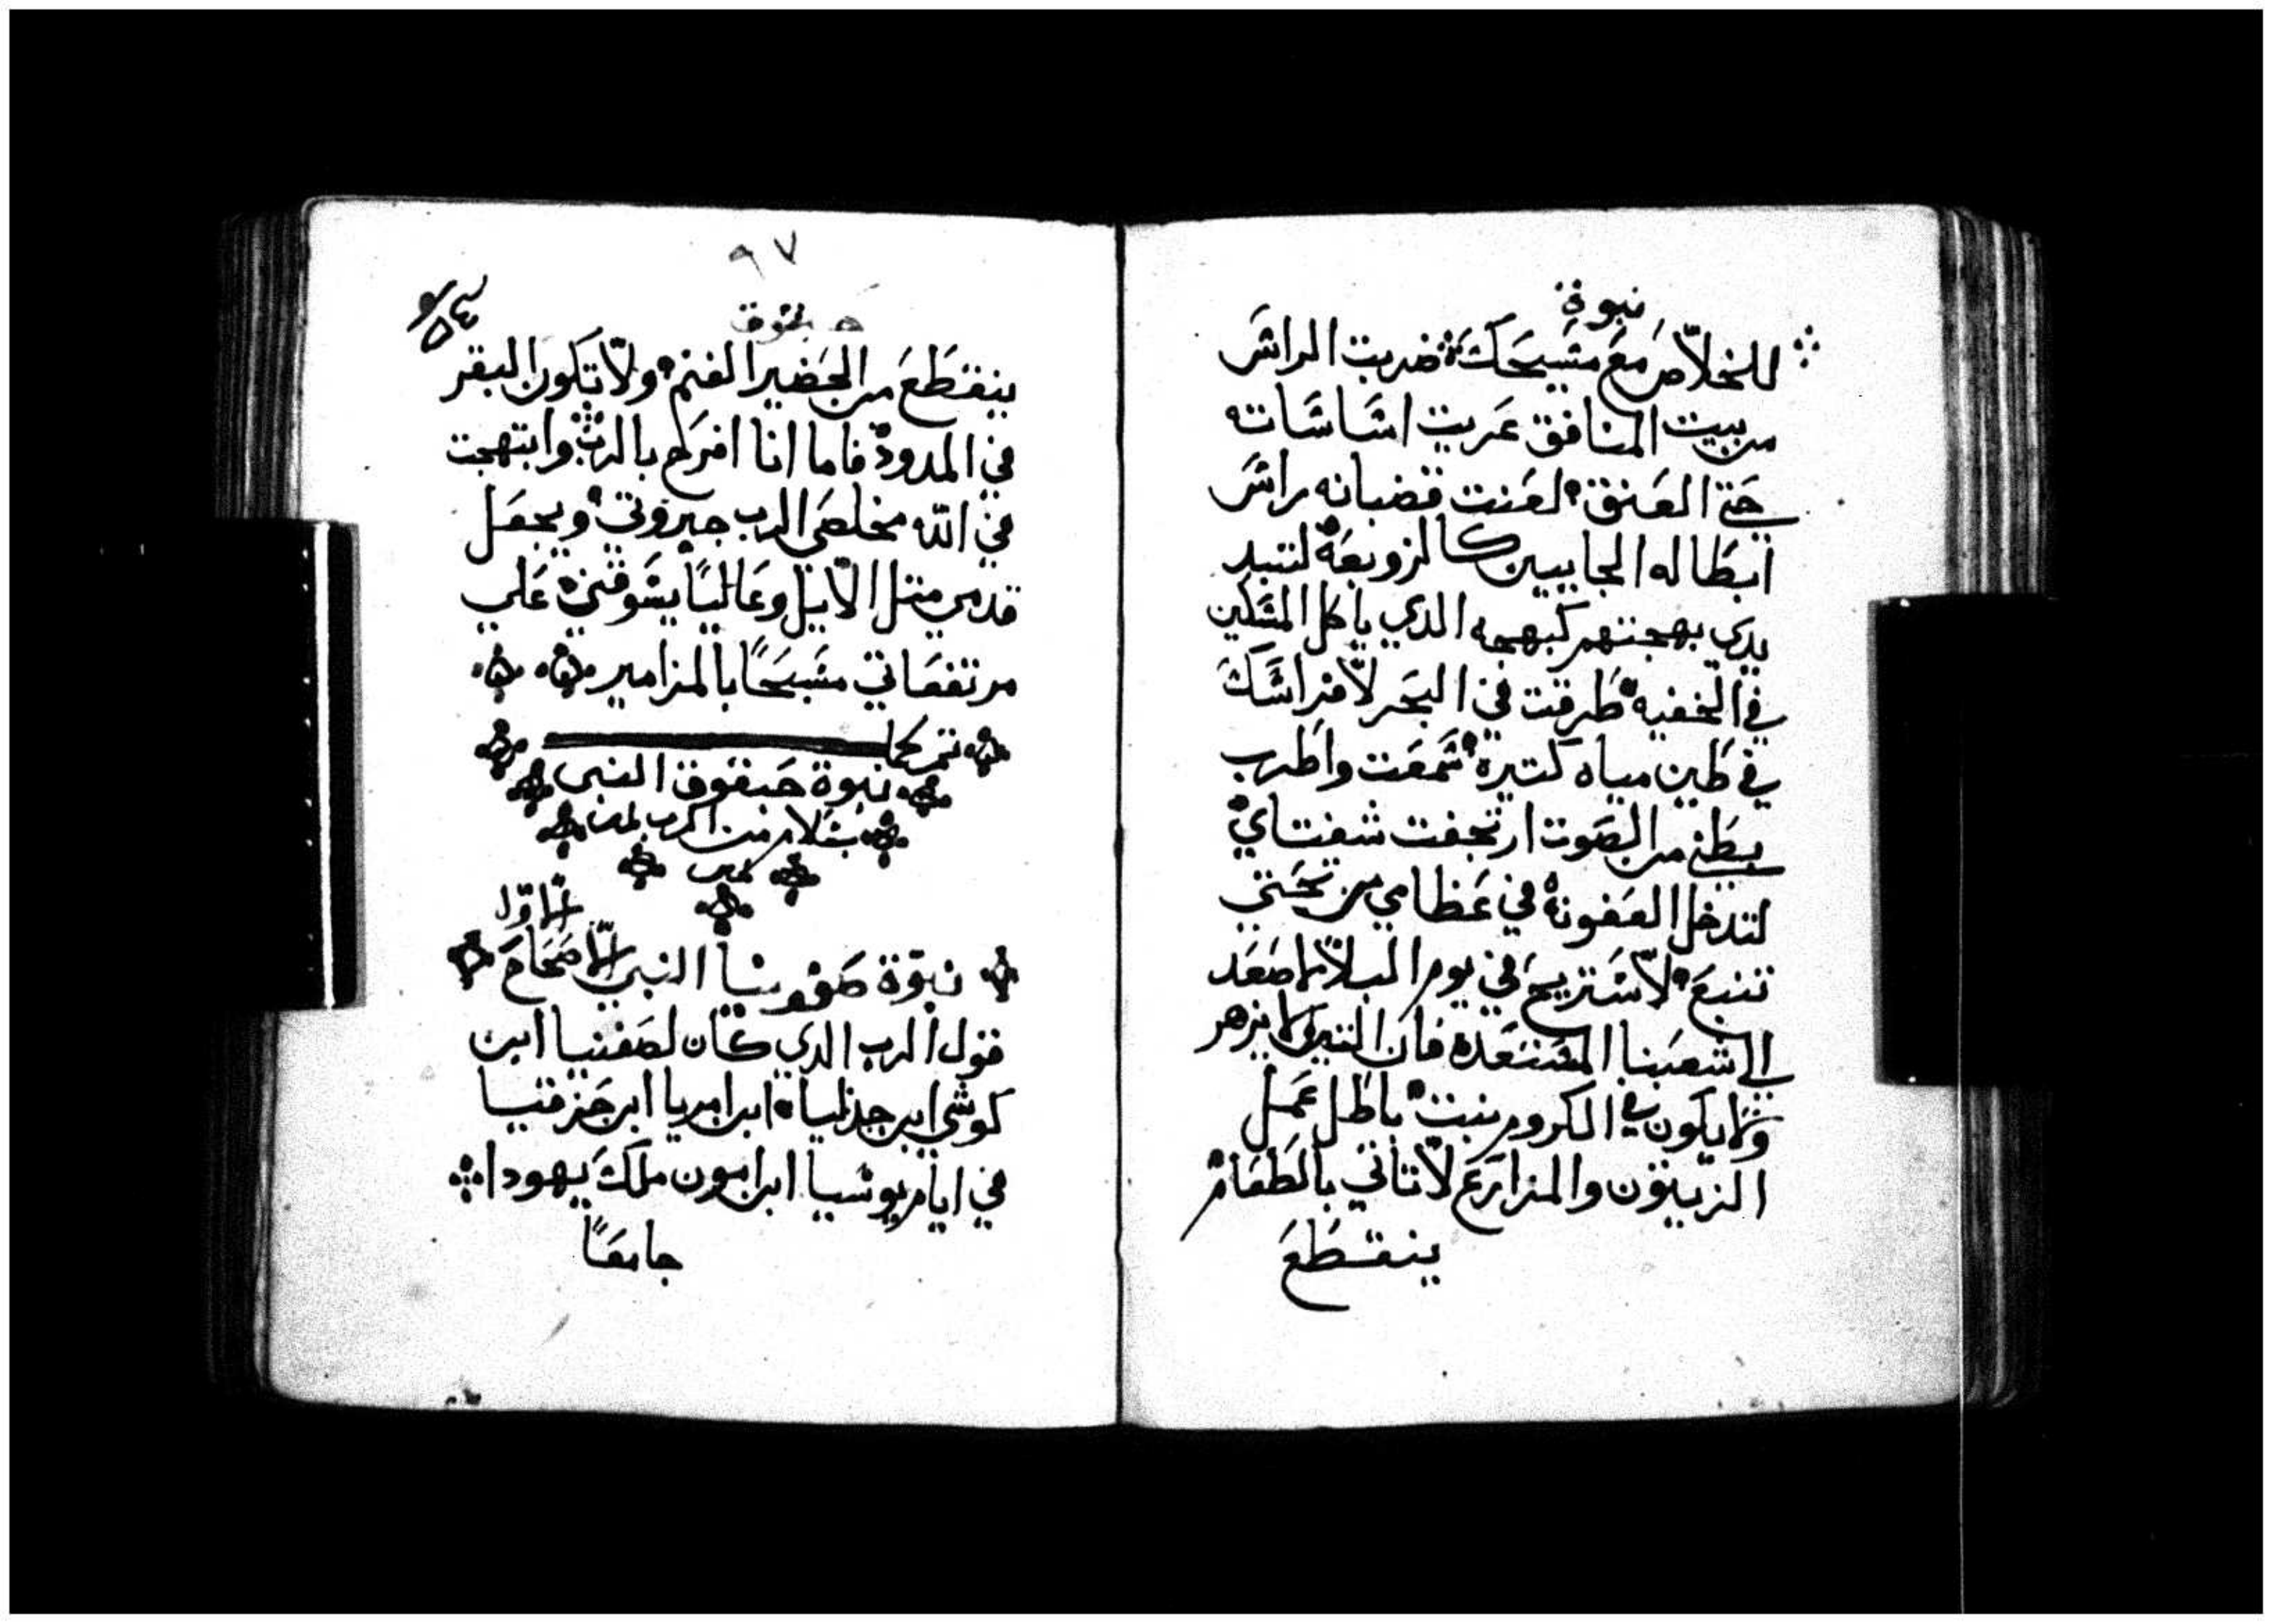 نبوة
للخلاّص مَع مسَيحَكَ ضربت الراسَ
من بيت المنافق عَريت اسَاسَاته
حَتي العَنق لعَنت قضبانه راسَ
ابطَاله الجاييين كالزوبعَة لتبدد
يدي بهجتهم كبهجه الدي ياكل المسَكين
في الخفيه طَرقت في البحَر لاّفراسَكَ
في طَين مياه كتيرة سَمعَت واطَرب
بطَني من الصَوت ارتجفت شفتاي
لتدخل العَفونة في عَظامي من تحَتي
تنبعَ لاّسَتريحَ في يوم البلاّ لاصَعَد
الي شعَبنا المسَتعَدة فان التين لا يزهر
ولا يكون في الكروم نبت باطَل عَمَل
الزيتون والمزارَعَ لاّتاتي بالطَعَام
ينقطَعَ
٩٧
حبقوق
ينقطَعَ من الحَضير الغنم ولاّتكون البقر
في المدود فاما انا افرَح بالرب وابتهجت
في الله مخلصَي الرب جبروتي ويجعَل
قدمي متل الاّيل وعَاليًا يسَوقني عَلي
مرتفعَاتي مسَبحًا بالمزامير
تمر كما
نبوة حَبقوق النبي
بسَلام من الرب امين
امين
الاوّل
نبوّة صَفونيا النبي الاّصحَاحَ
قول الرب الدي كان لصَفنيا ابن
كوشي ابن جدليا ابن امريا ابن حَزقيا
في ايام يوشيا ابن امون ملكَ يهودا
جامعًَا